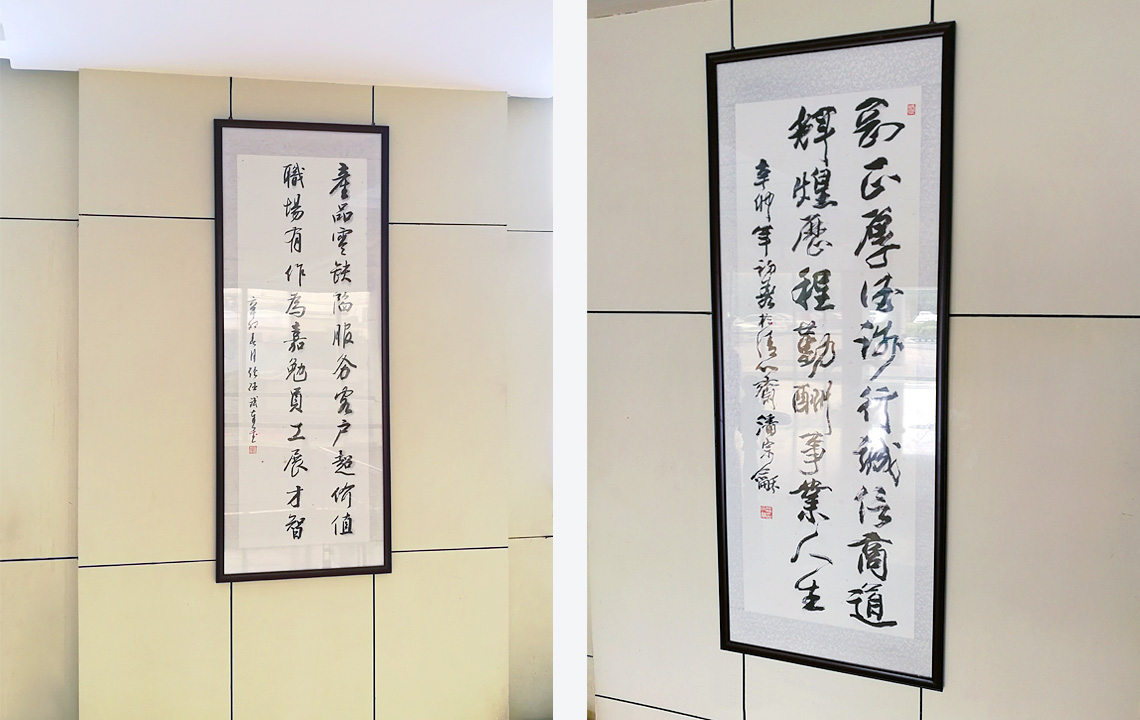 產品零缺陷服务客户超价值
職場有作為嘉勉員工展才智
辛卯春月
剛正厚德游行誠信商道
輝煌歷程勤酬事業人生
辛卯年初冬於清心齋潘宗龢